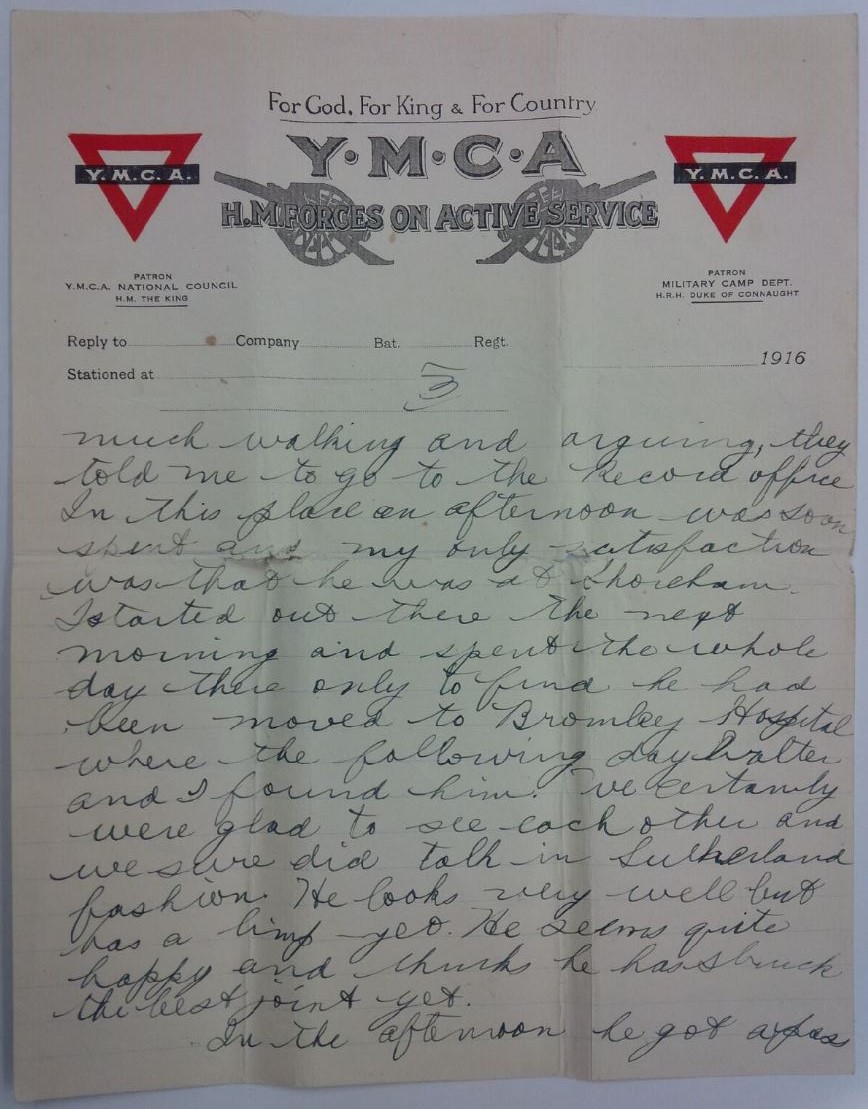 For God, For King & For Country
Y·M·C·A
Y. M. C. A.
Y. M. C. A.
H.M. FORCES ON ACTIVE SERVICE
PATRON
Y.M.C.A. NATIONAL COUNCIL
H.M. THE KING
PATRON
MILITARY CAMP DEPT.
H.R.H. DUKE OF CONNAUGHT
Reply to Company Bat. Regt.
1916
Stationed at
3
much walking and arguing, they
told me to go to the Record office
In this place an afternoon was soon
spent and my only satisfaction
was that he was at Shoreham.
I started out there the next
morning and spent the whole
day there only to find he had
been moved to Bromley Hospital
where the following day Walter
and I found him. We certainly
were glad to see each other and
we sure did talk in Sutherland
fashion. He looks very well but
has a limp yet. He seems quite
happy and thinks he has struck
the best joint yet.
In the afternoon he got a pass